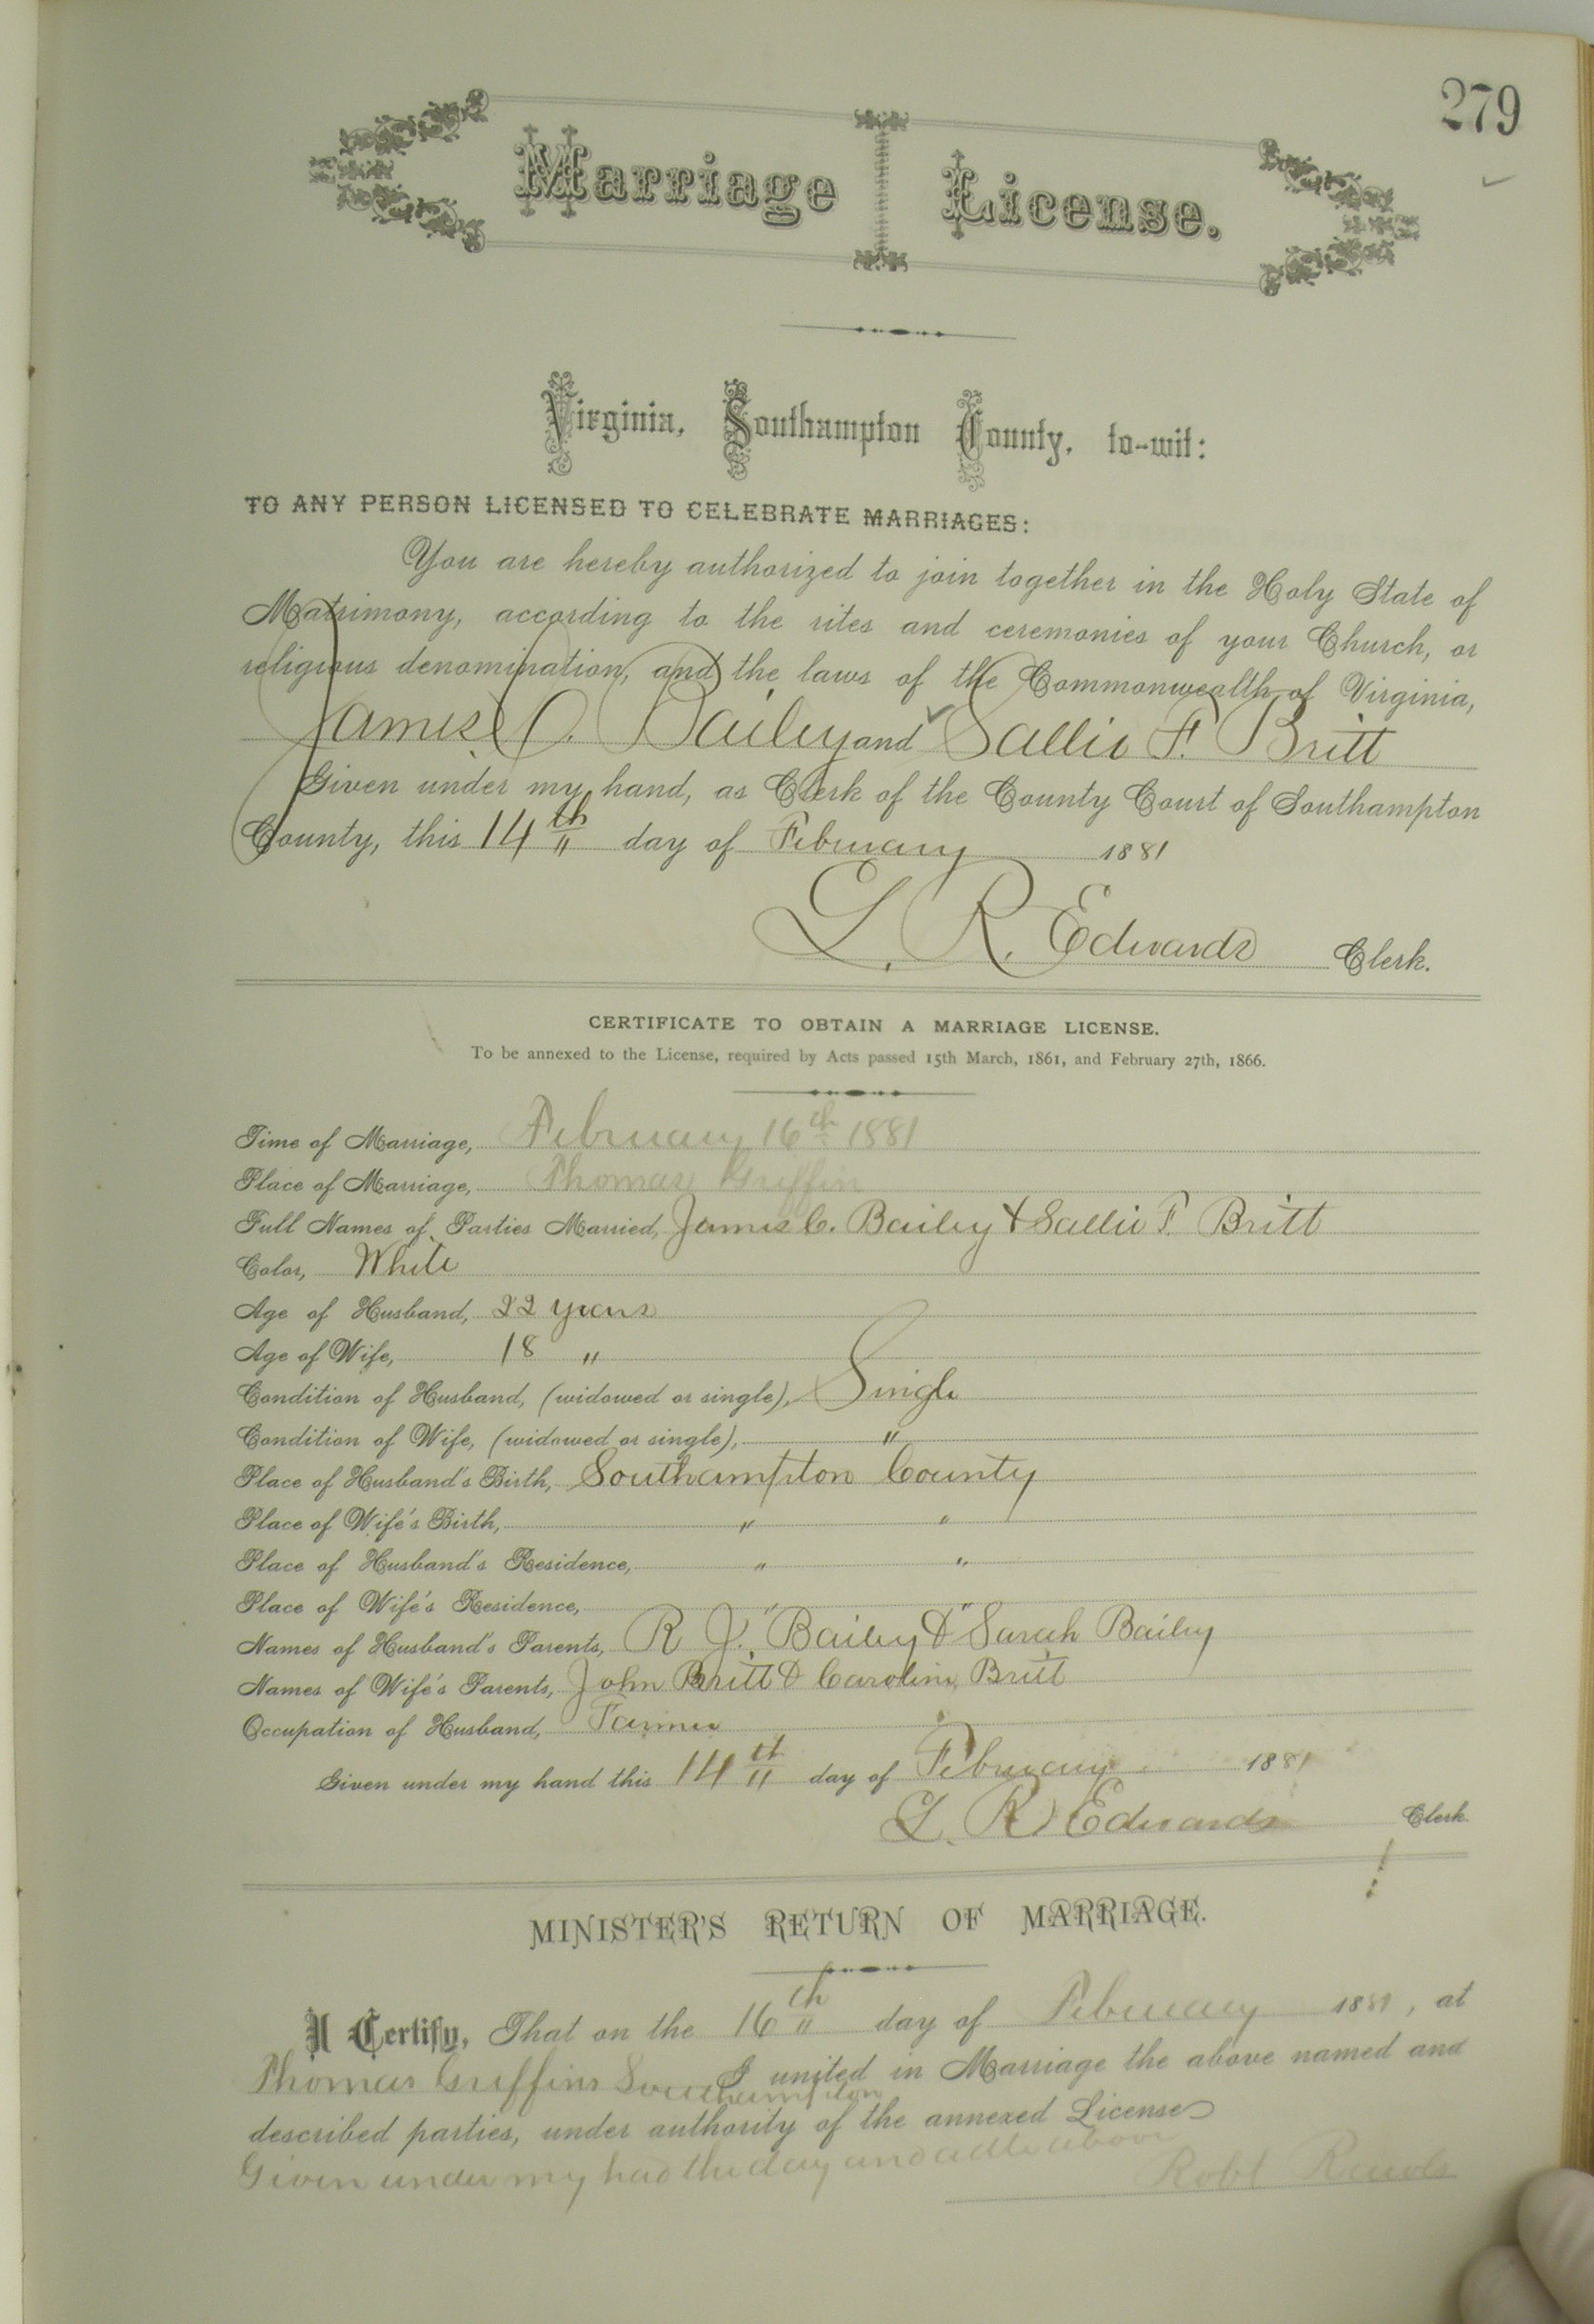 279
Marriage License.
Virginia, Southampton County, to-wit:
TO ANY PERSON LICENSED TO CELEBRATE MARRIAGES:
You are hereby authorized to join together in the Holy State of
Matrimony, according to the rites and ceremonies of your Church, or
religious denomination, and the laws of the Commonwealth of Virginia,
James C. Bailey and Sallie F. Britt
Given under my hand, as Clerk of the County Court of Southampton
County, this 14th day of February 1881
L. R. Edwards Clerk.
CERTIFICATE TO OBTAIN A MARRIAGE LICENSE.
To be annexed to the License, required by Acts passed 15th March, 1861, and February 27th, 1866.
Time of Marriage, February 16th 1881
Place of Marriage, Thomas Griffin
Full Names of Parties Married, James C. Bailey & Sallie F. Britt
Color, White
Age of Husband, 22 years
Age of Wife, 18 "
Condition of Husband, (widowed or single), Single
Condition of Wife, (widowed or single), "
Place of Husband's Birth, Southampton County
Place of Wife's Birth, " "
Place of Husband's Residence, " "
Place of Wife's Residence, " "
Names of Husband's Parents, R J. Bailey & Sarah Bailey
Names of Wife's Parents, John Britt & Caroline Britt
Occupation of Husband, Farmer
Given under my hand this 14th day of February 1881
L. R. Edwards Clerk
MINISTER'S RETURN OF MARRIAGE.
I Certify, That on the 16th day of February 1881, at
Thomas Griffins Southampton I united in Marriage the above named and
described parties, under authority of the annexed License
Given under my had the day and above
Robt Rawls